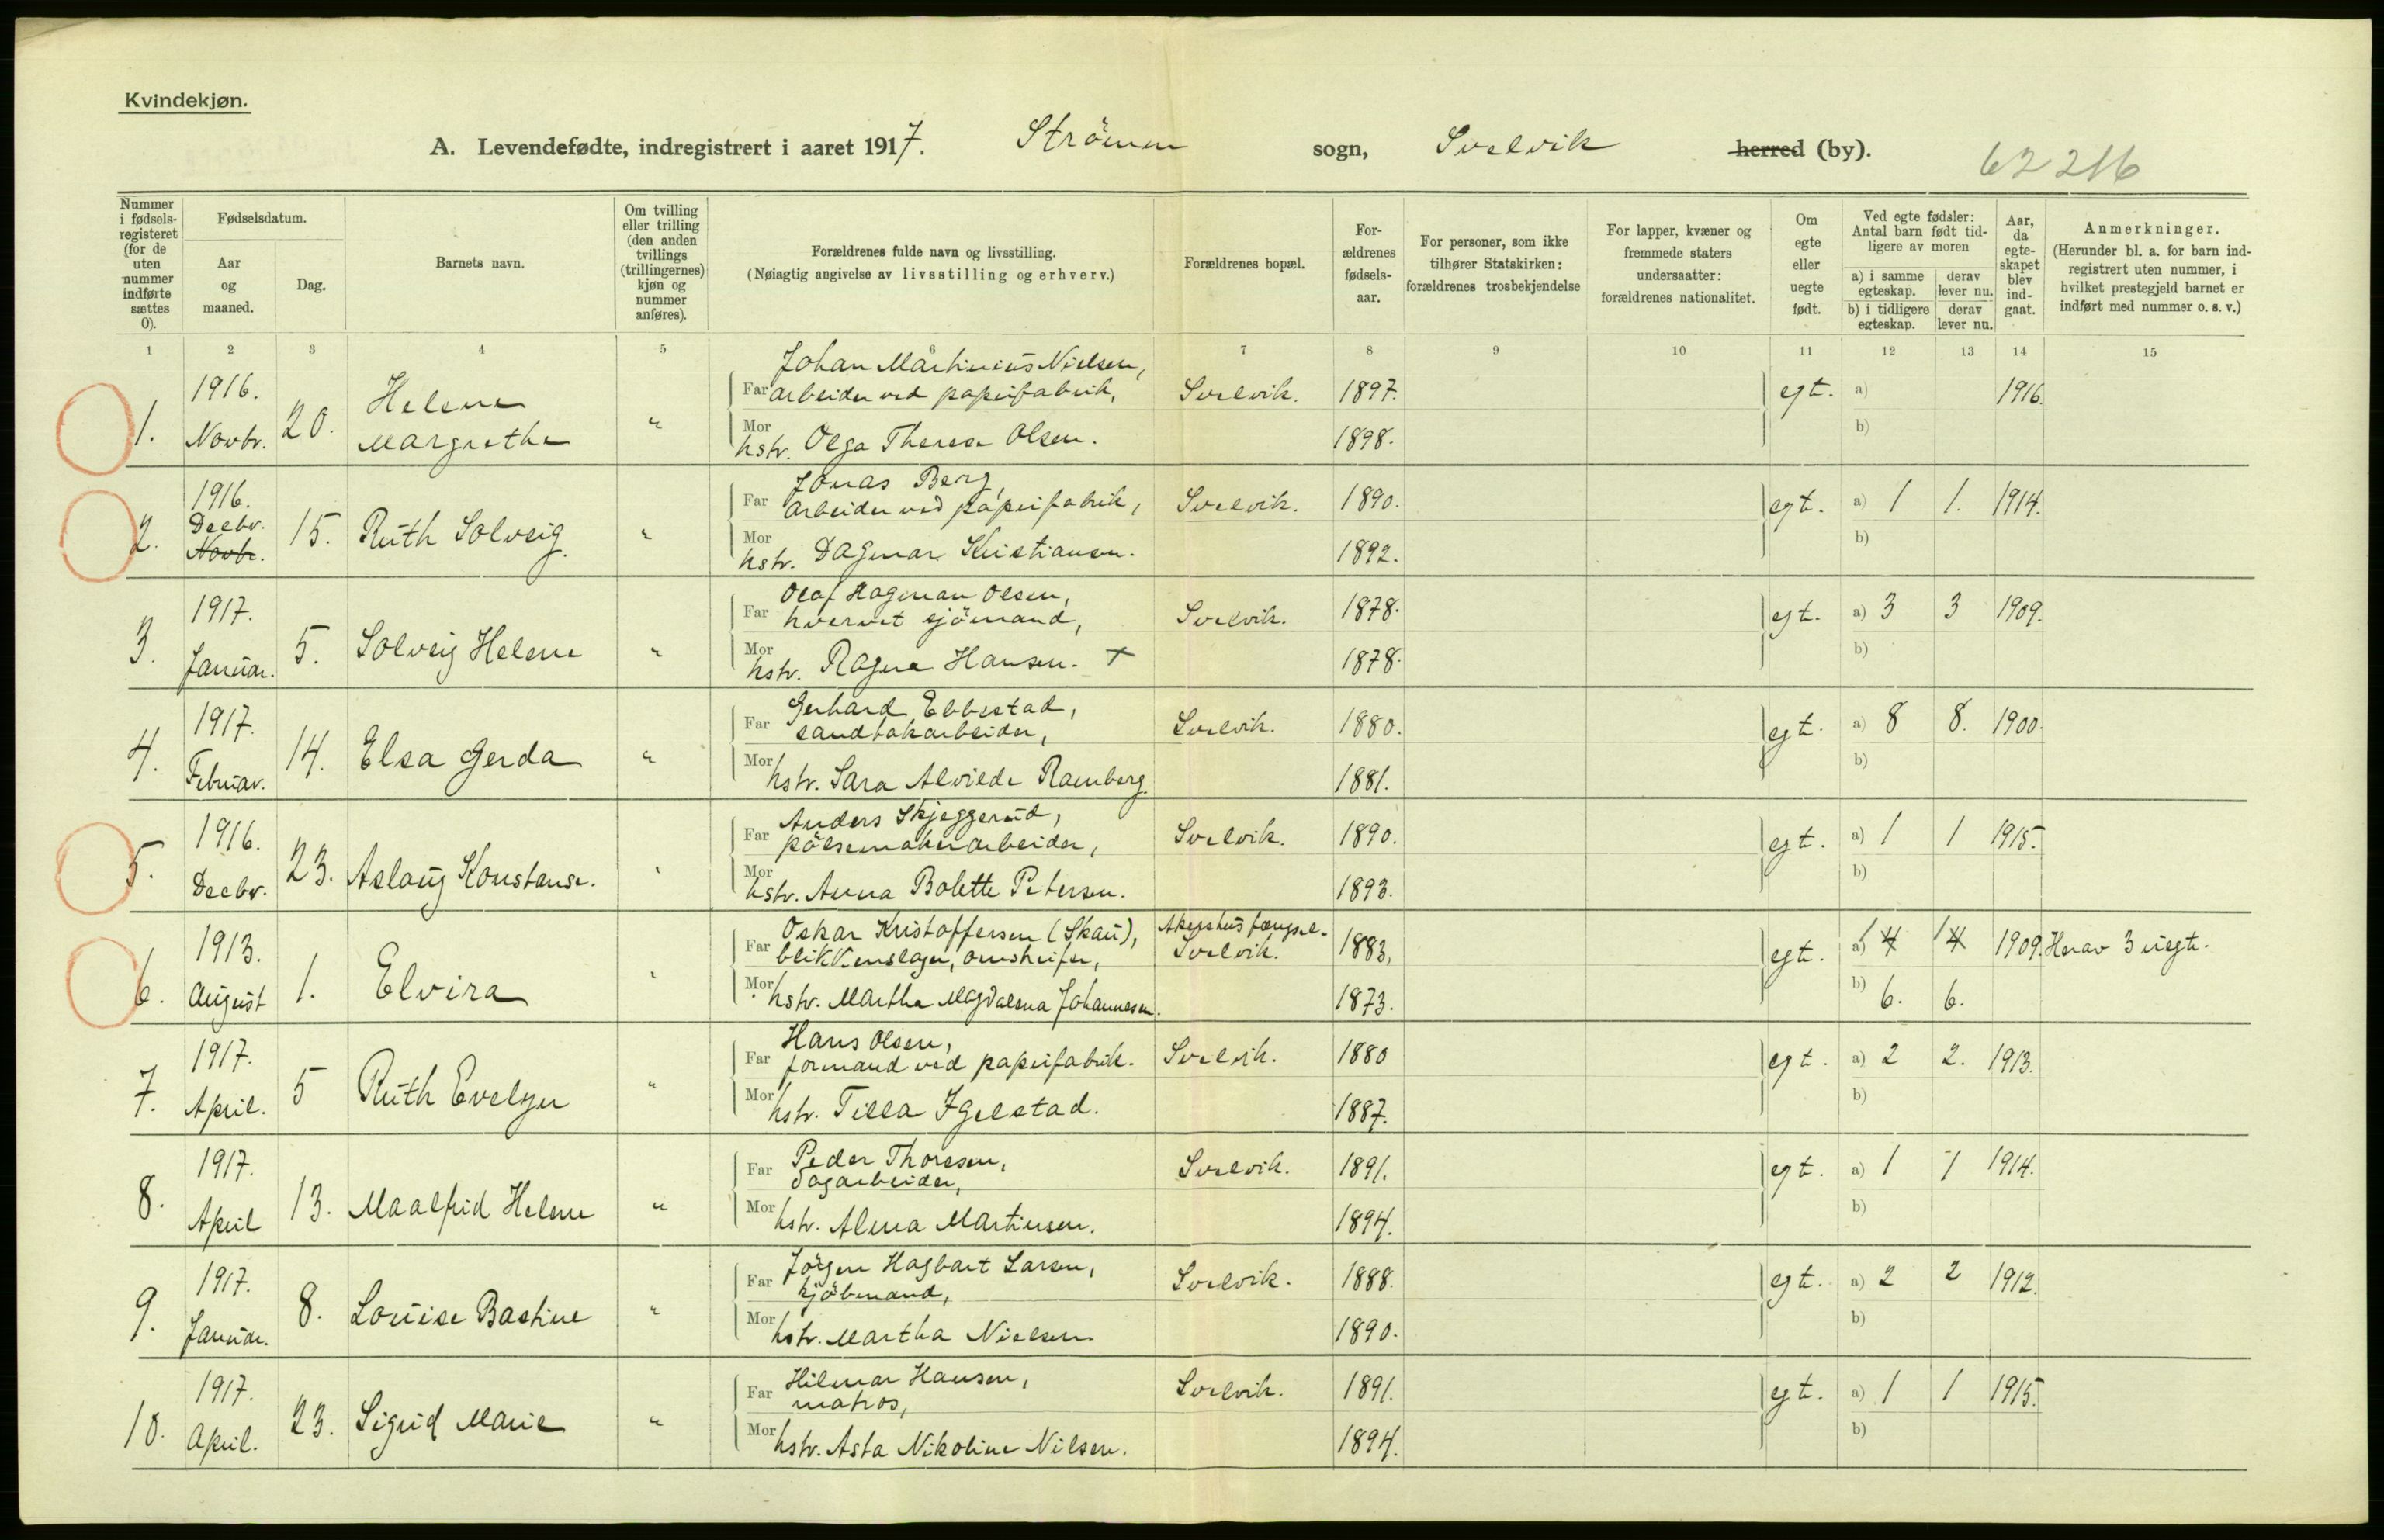 Kvindekjøn.
A. Levendefødte, indregistrert i aaret 1917. Strömm sogn, Svelvik herred (by).
62 216
Nummer i fødselsregisteret (for de uten nummer indførte sættes 0).
Fødselsdatum.
Aar og maaned.
Dag.
Barnets navn.
Om tvilling eller trilling (den anden tvillings (trillingernes) kjøn og nummer anføres).
Forældrenes fulde navn og livsstilling.
(Nøiagtig angivelse av livsstilling og erhverv.)
Forældrenes bopæl.
Forældrenes fødselsaar.
For personer, som ikke tilhører Statskirken: forældrenes trosbekjendelse
For lapper, kvæner og fremmede staters undersaatter: forældrenes nationalitet.
Om egte eller uegte født.
Ved egte fødsler: Antal barn født tidligere av moren
a) i samme egteskap.
derav lever nu.
b) i tidligere egteskap.
derav lever nu.
Aar, da egteskapet blev indgaat.
Anmerkninger.
(Herunder bl. a. for barn indregistrert uten nummer, i hvilket prestegjeld barnet er indført med nummer o. s. v.)
1 2 3 4 5 6 7 8 9 10 11 12 13 14 15
Johan Martinius Nielsen,
1. 1916. Novbr. 20. Helene Margrethe " Far arbeider ved papirfabrik, Svelvik. 1897. egt. a) 1916.
Mor hstr. Olga Therese Olsen. 1898. b)
Jonas Berg,
2. 1916. Decbr. Novbr. 15. Ruth Solveig. " Far arbeider ved papirfabrik, Svelvik. 1890. egt. a) 1 1. 1914.
Mor hstr. Dagmar Kristiansen. 1892. b)
Olaf Hagman Olsen,
3. 1917. Januar. 5. Solveig Helene " Far hvervet sjömand, Svelvik. 1878. egt. a) 3 3 1909.
Mor hstr. Ragna Hansen. + 1878. b)
Gerhard Ebbestad,
4. 1917. Februar. 14. Elsa Gerda " Far sandtakarbeider, Svelvik. 1880. egt. a) 8 8. 1900.
Mor hstr. Sara Alvilde Ramberg. 1881. b)
Anders Skjeggerud,
5. 1916. Decbr. 23. Aslaug Konstanse. " Far pölsemakerarbeider, Svelvik. 1890. egt. a) 1 1 1915.
Mor hstr. Anna Bolette Petersen. 1893. b)
Oskar Kristoffersen (Skau), Akershus fængsel.
6. 1913. August 1. Elvira " Far blikkenslager, omstreifer, Svelvik. 1883. egt. a) 4 4 1909. Herav 3 uegte.
Mor hstr. Martha Magdalena Johannesen. 1873. b) 6. 6.
Hans Olsen,
7. 1917. April. 5 Ruth Evelyn " Far formand ved papirfabrik. Svelvik. 1880 egt. a) 2 2. 1913.
Mor hstr. Tilla Igelstad. 1887. b)
Peder Thoresen,
8. 1917. April 13. Maalfrid Helene " Far dagarbeider, Svelvik. 1891. egt. a) 1 1 1914.
Mor hstr. Alma Martinsen. 1894. b)
Jörgen Hagbart Larsen,
9. 1917. Januar. 8. Louise Bastine " Far kjöbmand, Svelvik. 1888. egt. a) 2 2 1912.
Mor hstr. Martha Nielsen 1890. b)
Hilmar Hansen,
10. 1917. April. 23. Sigrid Marie " Far matros, Svelvik. 1891. egt. a) 1 1 1915.
Mor hstr. Asta Nikoline Nilsen. 1894. b)